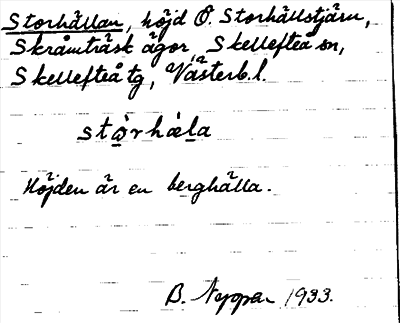 Storhällan, höjd Ö. Storhällstjärn,
Skråmträsk ägor, Skellefteå sn,
Skellefteå tg, Västerb.l.
stòrhæla
Höjden är en berghälla.
B. 1933.